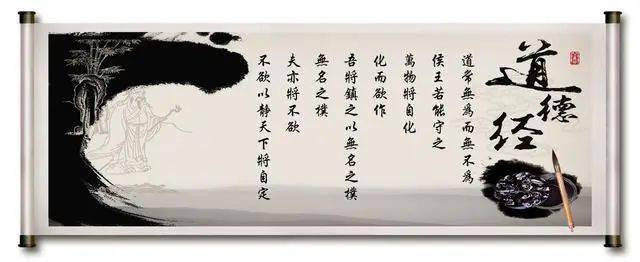 道德经
道常無為而無不為
侯王若能守之
萬物將自化
化而欲作
吾將鎮之以無名之樸
無名之樸
夫亦將不欲
不欲以静天下將自定